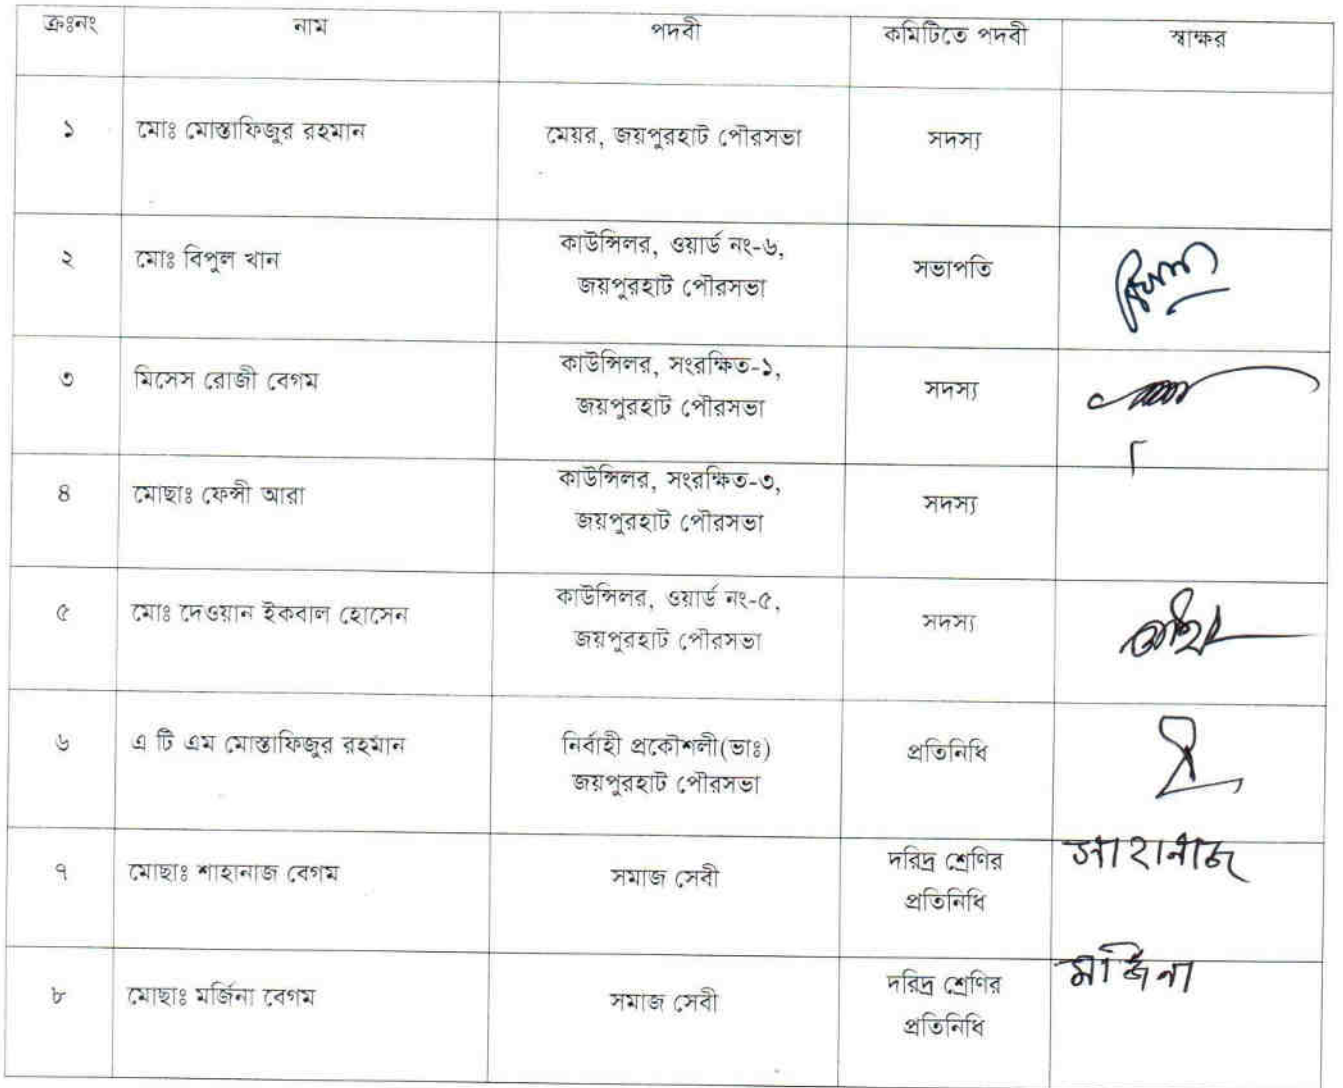 ক্রঃনং নাম পদবী কমিটিতে পদবী স্বাক্ষর
১ মোঃ মোস্তাফিজুর রহমান মেয়র, জয়পুরহাট পৌরসভা সদস্য
২ মোঃ বিপুল খান কাউন্সিলর, ওয়ার্ড নং-৬, সভাপতি
জয়পুরহাট পৌরসভা
৩ মিসেস রোজী বেগম কাউন্সিলর, সংরক্ষিত-১, সদস্য
জয়পুরহাট পৌরসভা
৪ মোছাঃ ফেন্সী আরা কাউন্সিলর, সংরক্ষিত-৩, সদস্য
জয়পুরহাট পৌরসভা
৫ মোঃ দেওয়ান ইকবাল হোসেন কাউন্সিলর, ওয়ার্ড নং-৫, সদস্য
জয়পুরহাট পৌরসভা
৬ এ টি এম মোস্তাফিজুর রহমান নির্বাহী প্রকৌশলী(ভাঃ) প্রতিনিধি
জয়পুরহাট পৌরসভা
৭ মোছাঃ শাহানাজ বেগম সমাজ সেবী দরিদ্র শ্রেণির সাহানাজ
প্রতিনিধি
৮ মোছাঃ মর্জিনা বেগম সমাজ সেবী দরিদ্র শ্রেণির মর্জিনা
প্রতিনিধি